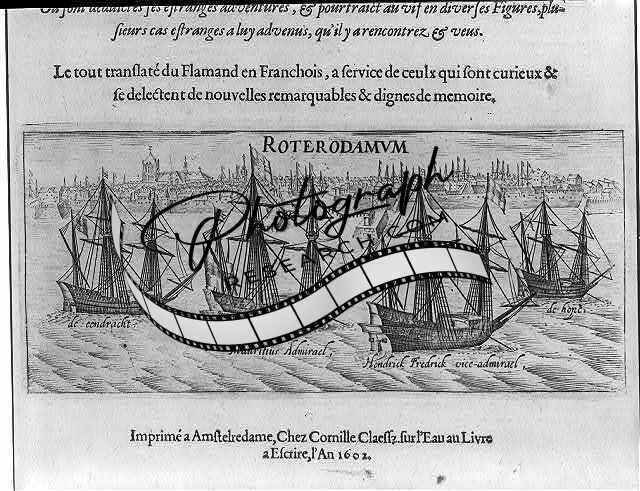 Ou sont deduictes ses estranges adventures, & pourtraict au vif en diverses Figures, plu-
sieurs cas estranges a luy advenus, qu'il y a rencontrez & veus.
Le tout translaté du Flamand en Franchois, a service de ceulx qui sont curieux &
se delectent de nouvelles remarquables & dignes de memoire.
ROTERODAMVM
Photograph
RESEARCH.COM
de eendracht.
Mauritius Admirael,
Hendrick Fredrick vice-admirael,
de hope.
Imprimé a Amstelredame, Chez Cornille Claessz. sur l'Eau au Livre
a Escrire, l'An 1602.